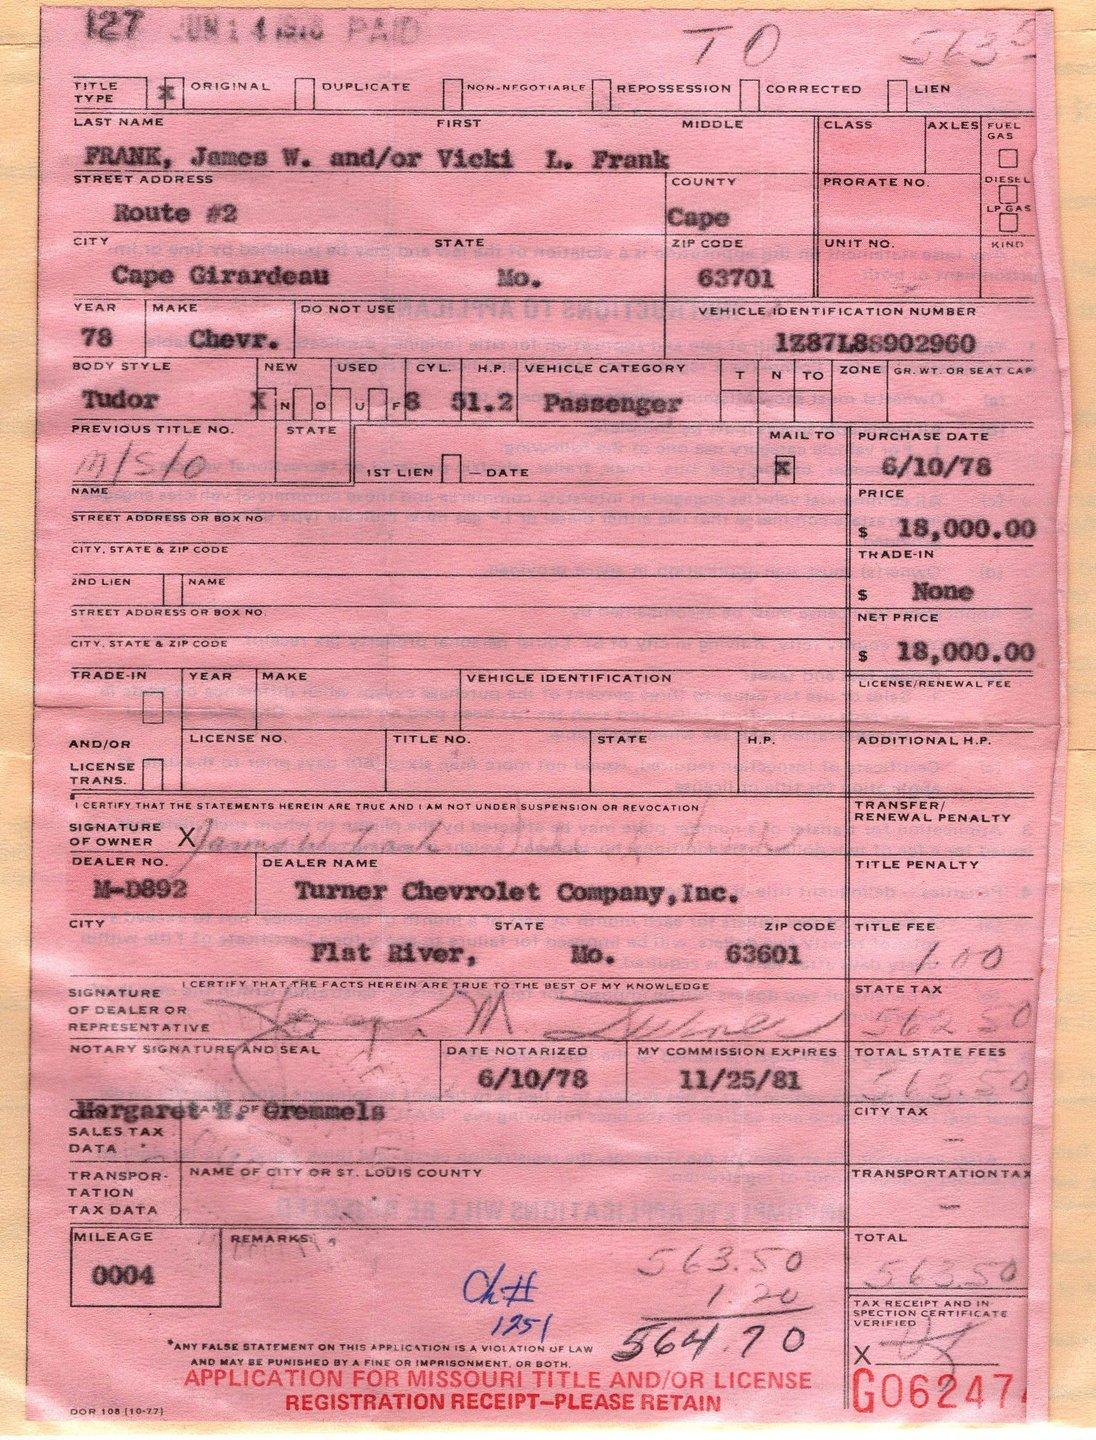 127 JUN 14 1978 PAID
TO 563.5
TITLE TYPE X ORIGINAL DUPLICATE NON-NEGOTIABLE REPOSSESSION CORRECTED LIEN
LAST NAME FIRST MIDDLE CLASS AXLES FUEL GAS
FRANK, James W. and/or Vicki L. Frank
STREET ADDRESS COUNTY PRORATE NO. DIESEL
Route #2 Cape LP GAS
CITY STATE ZIP CODE UNIT NO. KIND
Cape Girardeau Mo. 63701
YEAR MAKE DO NOT USE VEHICLE IDENTIFICATION NUMBER
78 Chevr. 1Z87L8S902960
BODY STYLE NEW USED CYL. H.P. VEHICLE CATEGORY T N TO ZONE GR. WT. OR SEAT CAP
Tudor X N O U F 8 51.2 Passenger
PREVIOUS TITLE NO. STATE MAIL TO PURCHASE DATE
M/S/O 1ST LIEN - DATE X 6/10/78
NAME PRICE
STREET ADDRESS OR BOX NO $ 18,000.00
CITY, STATE & ZIP CODE TRADE-IN
2ND LIEN NAME $ None
STREET ADDRESS OR BOX NO. NET PRICE
CITY, STATE & ZIP CODE $ 18,000.00
TRADE-IN YEAR MAKE VEHICLE IDENTIFICATION LICENSE/RENEWAL FEE
AND/OR LICENSE NO. TITLE NO. STATE H.P. ADDITIONAL H.P.
LICENSE TRANS.
*I CERTIFY THAT THE STATEMENTS HEREIN ARE TRUE AND I AM NOT UNDER SUSPENSION OR REVOCATION TRANSFER/ RENEWAL PENALTY
SIGNATURE OF OWNER X James W. Frank
DEALER NO. DEALER NAME TITLE PENALTY
M-D892 Turner Chevrolet Company,Inc.
CITY STATE ZIP CODE TITLE FEE
Flat River, Mo. 63601 1.00
I CERTIFY THAT THE FACTS HEREIN ARE TRUE TO THE BEST OF MY KNOWLEDGE STATE TAX
SIGNATURE OF DEALER OR REPRESENTATIVE 562.50
NOTARY SIGNATURE AND SEAL DATE NOTARIZED MY COMMISSION EXPIRES TOTAL STATE FEES
6/10/78 11/25/81 563.50
Margaret E. Gremmels
NAME OF CITY TAX
SALES TAX DATA -
TRANSPORTATION TAX DATA NAME OF CITY OR ST. LOUIS COUNTY TRANSPORTATION TAX
-
MILEAGE REMARKS: TOTAL
0004 563.50 563.50
Ch# 1.20
1251 564.70
TAX RECEIPT AND INSPECTION CERTIFICATE VERIFIED
X
*ANY FALSE STATEMENT ON THIS APPLICATION IS A VIOLATION OF LAW
AND MAY BE PUNISHED BY A FINE OR IMPRISONMENT, OR BOTH.
APPLICATION FOR MISSOURI TITLE AND/OR LICENSE
REGISTRATION RECEIPT–PLEASE RETAIN
G06247
DOR 108 (10-77)